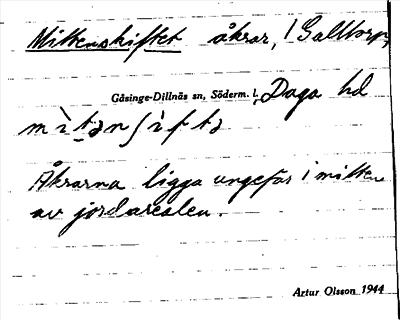 Mittenskiftet åkrar, / Galltorp,
Gåsinge-Dillnäs sn, Söderm. l., Daga hd
mìtənʃìftə
Åkrarna ligga ungefär i mitten
av jordarealen.
Artur Olsson 1944